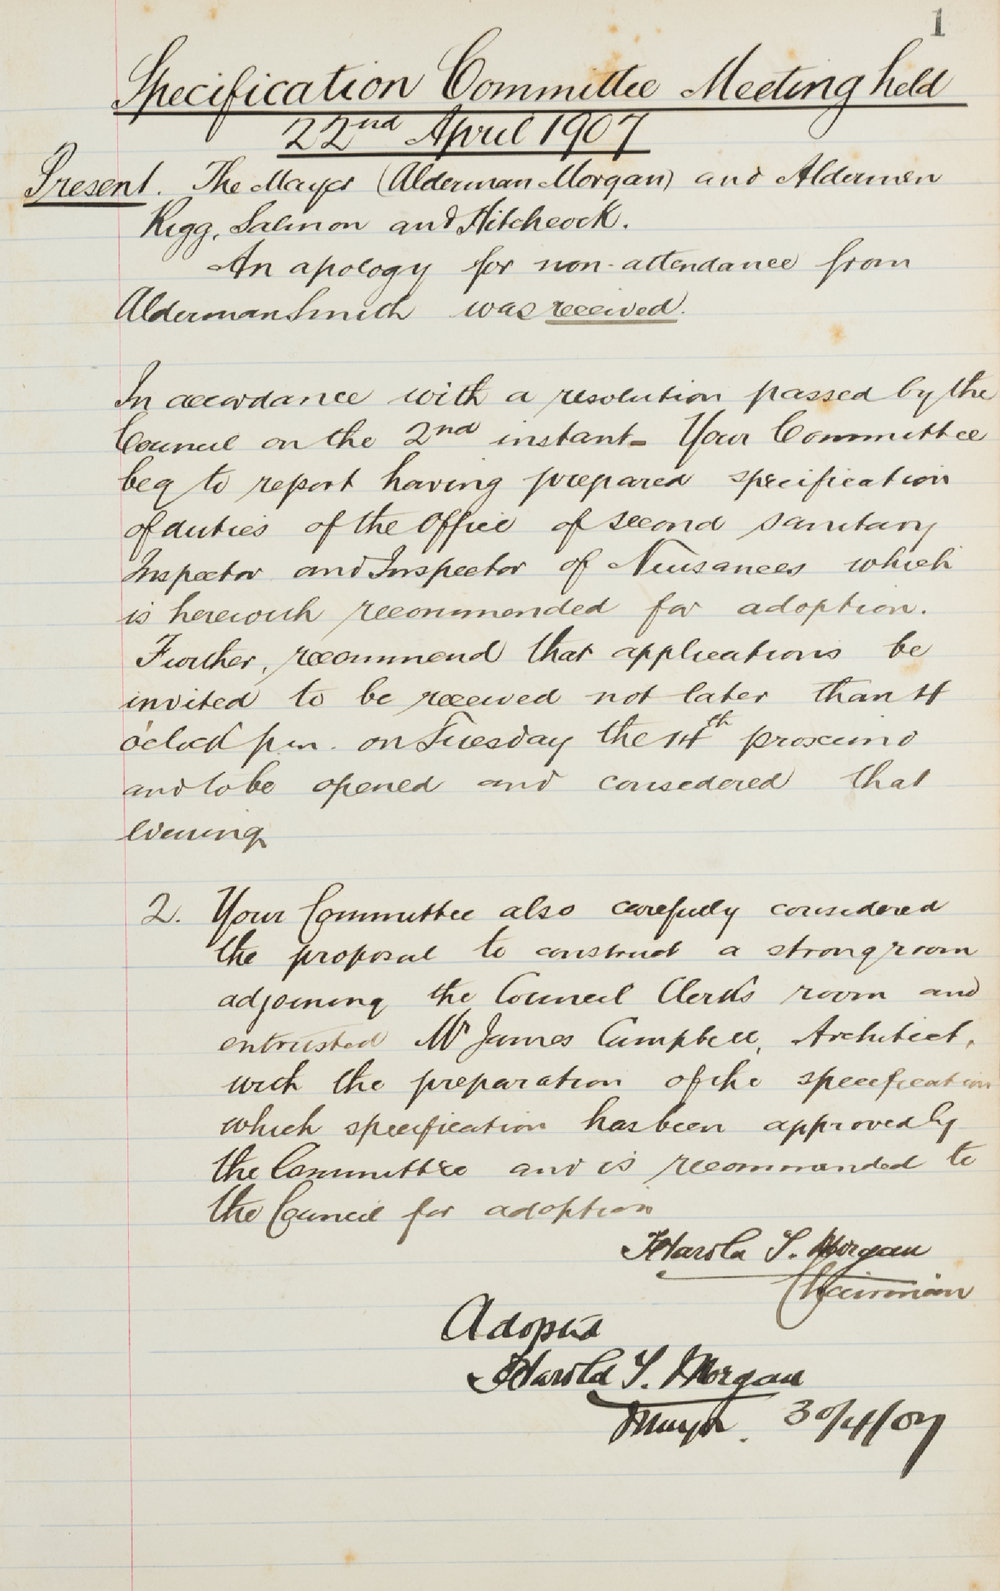 1
Specification Committee Meeting held
22nd April 1907
Present. The Mayor (Alderman Morgan) and Aldermen
Rigg, Salmon and Hitchcock.
An apology for non-attendance from
Alderman Smith was received.
In accordance with a resolution passed by the
Council on the 2nd instant - Your Committee
beg to report having prepared specification
of duties of the Office of second sanitary
Inspector and Inspector of Nuisances which
is herewith recommended for adoption.
Further, recommend that applications be
invited to be received not later than 4
o'clock p.m. on Tuesday the 14th proximo
and to be opened and considered that
evening
2. Your Committee also carefully considered
the proposal to construct a strongroom
adjoining the Council Clerk's room and
entrusted Mr James Campbell, Architect,
with the preparation of the specification
which specification has been approved by
the Committee and is recommended to
the Council for adoption
Harold T. Morgan
Chairman
Adopted
Harold T. Morgan
Mayor. 30/4/07